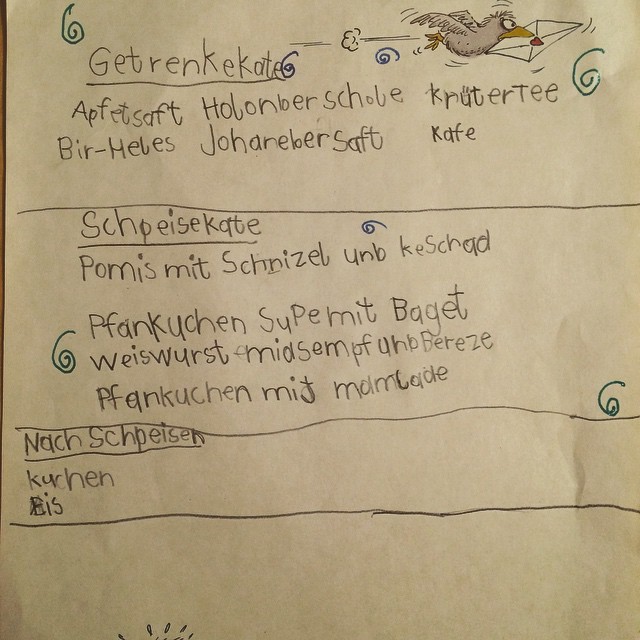 Getrenkekate
Apfelsaft Holonberschole Krütertee
Bir-Heles Johaneber Saft Kafe
Schpeisekate
Pomis mit Schnizel unb keschad
Pfankuchen Supe mit Baget
weiswurst midsempf unb Bereze
Pfankuchen mit mamlade
Nach Schpeisen
kuchen
Eis